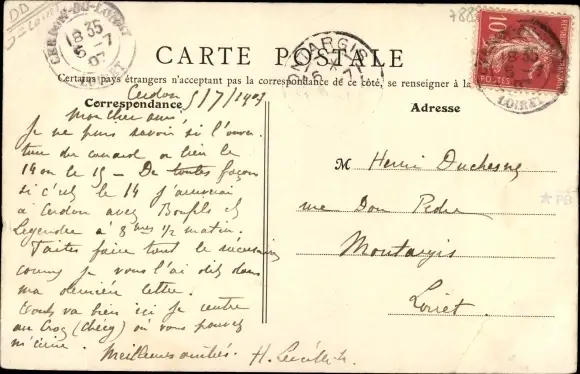 DD
Loiret
788
CERDON-DU-LOIRET
18 35
5-7
07
LOIRET
CARTE POSTALE
MONTARGIS
6 -7
10
POSTES
LOIRET
Certains pays étrangers n'acceptant pas la correspondance de ce côté, se renseigner à la
Correspondance
Adresse
Cerdon 5/7/1907
Mon cher ami,
Je ne puis savoir si l'ouver
ture du canard a lieu le
14 ou le 15 — De toutes façons
si c'est le 14 j'arriverai
à Cerdon avec Bonfils et
Legendre à 8 hres 1/2 matin.
Faites faire tout le nécessaire
comme je vous l'ai dit dans
ma dernière lettre.
Tout va bien ici je rentre
au Croc (Chécy) où vous pouvez
m'écrire.
Meilleures amitiés. H.
M Henri Duchesne
rue Dom Pedre
Montargis
Loiret
PB